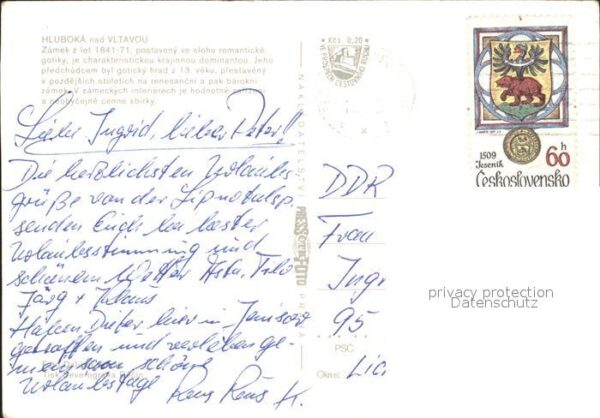 HLUBOKÁ nad VLTAVOU
Zámek z let 1841-71, postavený ve slohu romantické
gotiky, je charakteristickou krajinnou dominantou. Jeho
předchůdcem byl gotický hrad z 13. věku, přestavěný
v pozdějších stoletích na renesanční a pak barokní
zámek. V zámeckých interiérech je hodnotné zařízení
a neobyčejně cenné sbírky.
Liebe Ingrid, lieber Peter!!
Die herzlichsten Urlaubs-
grüße von der Lipnotalsp.
senden Euch bei bester
Urlaubsstimmung und
schönem Wetter Asta, Filo
Jörg + Klaus
Haben Dieter hier in
getroffen und verleben ge-
meinsam schöne
Urlaubstage
NAKLADATELSTVÍ
PRESSFOTO
Kčs 0,20
1509
Jeseník
60 h
Československo
DDR
Frau
Ingr
95
PSČ
Okres:
privacy protection
Datenschutz